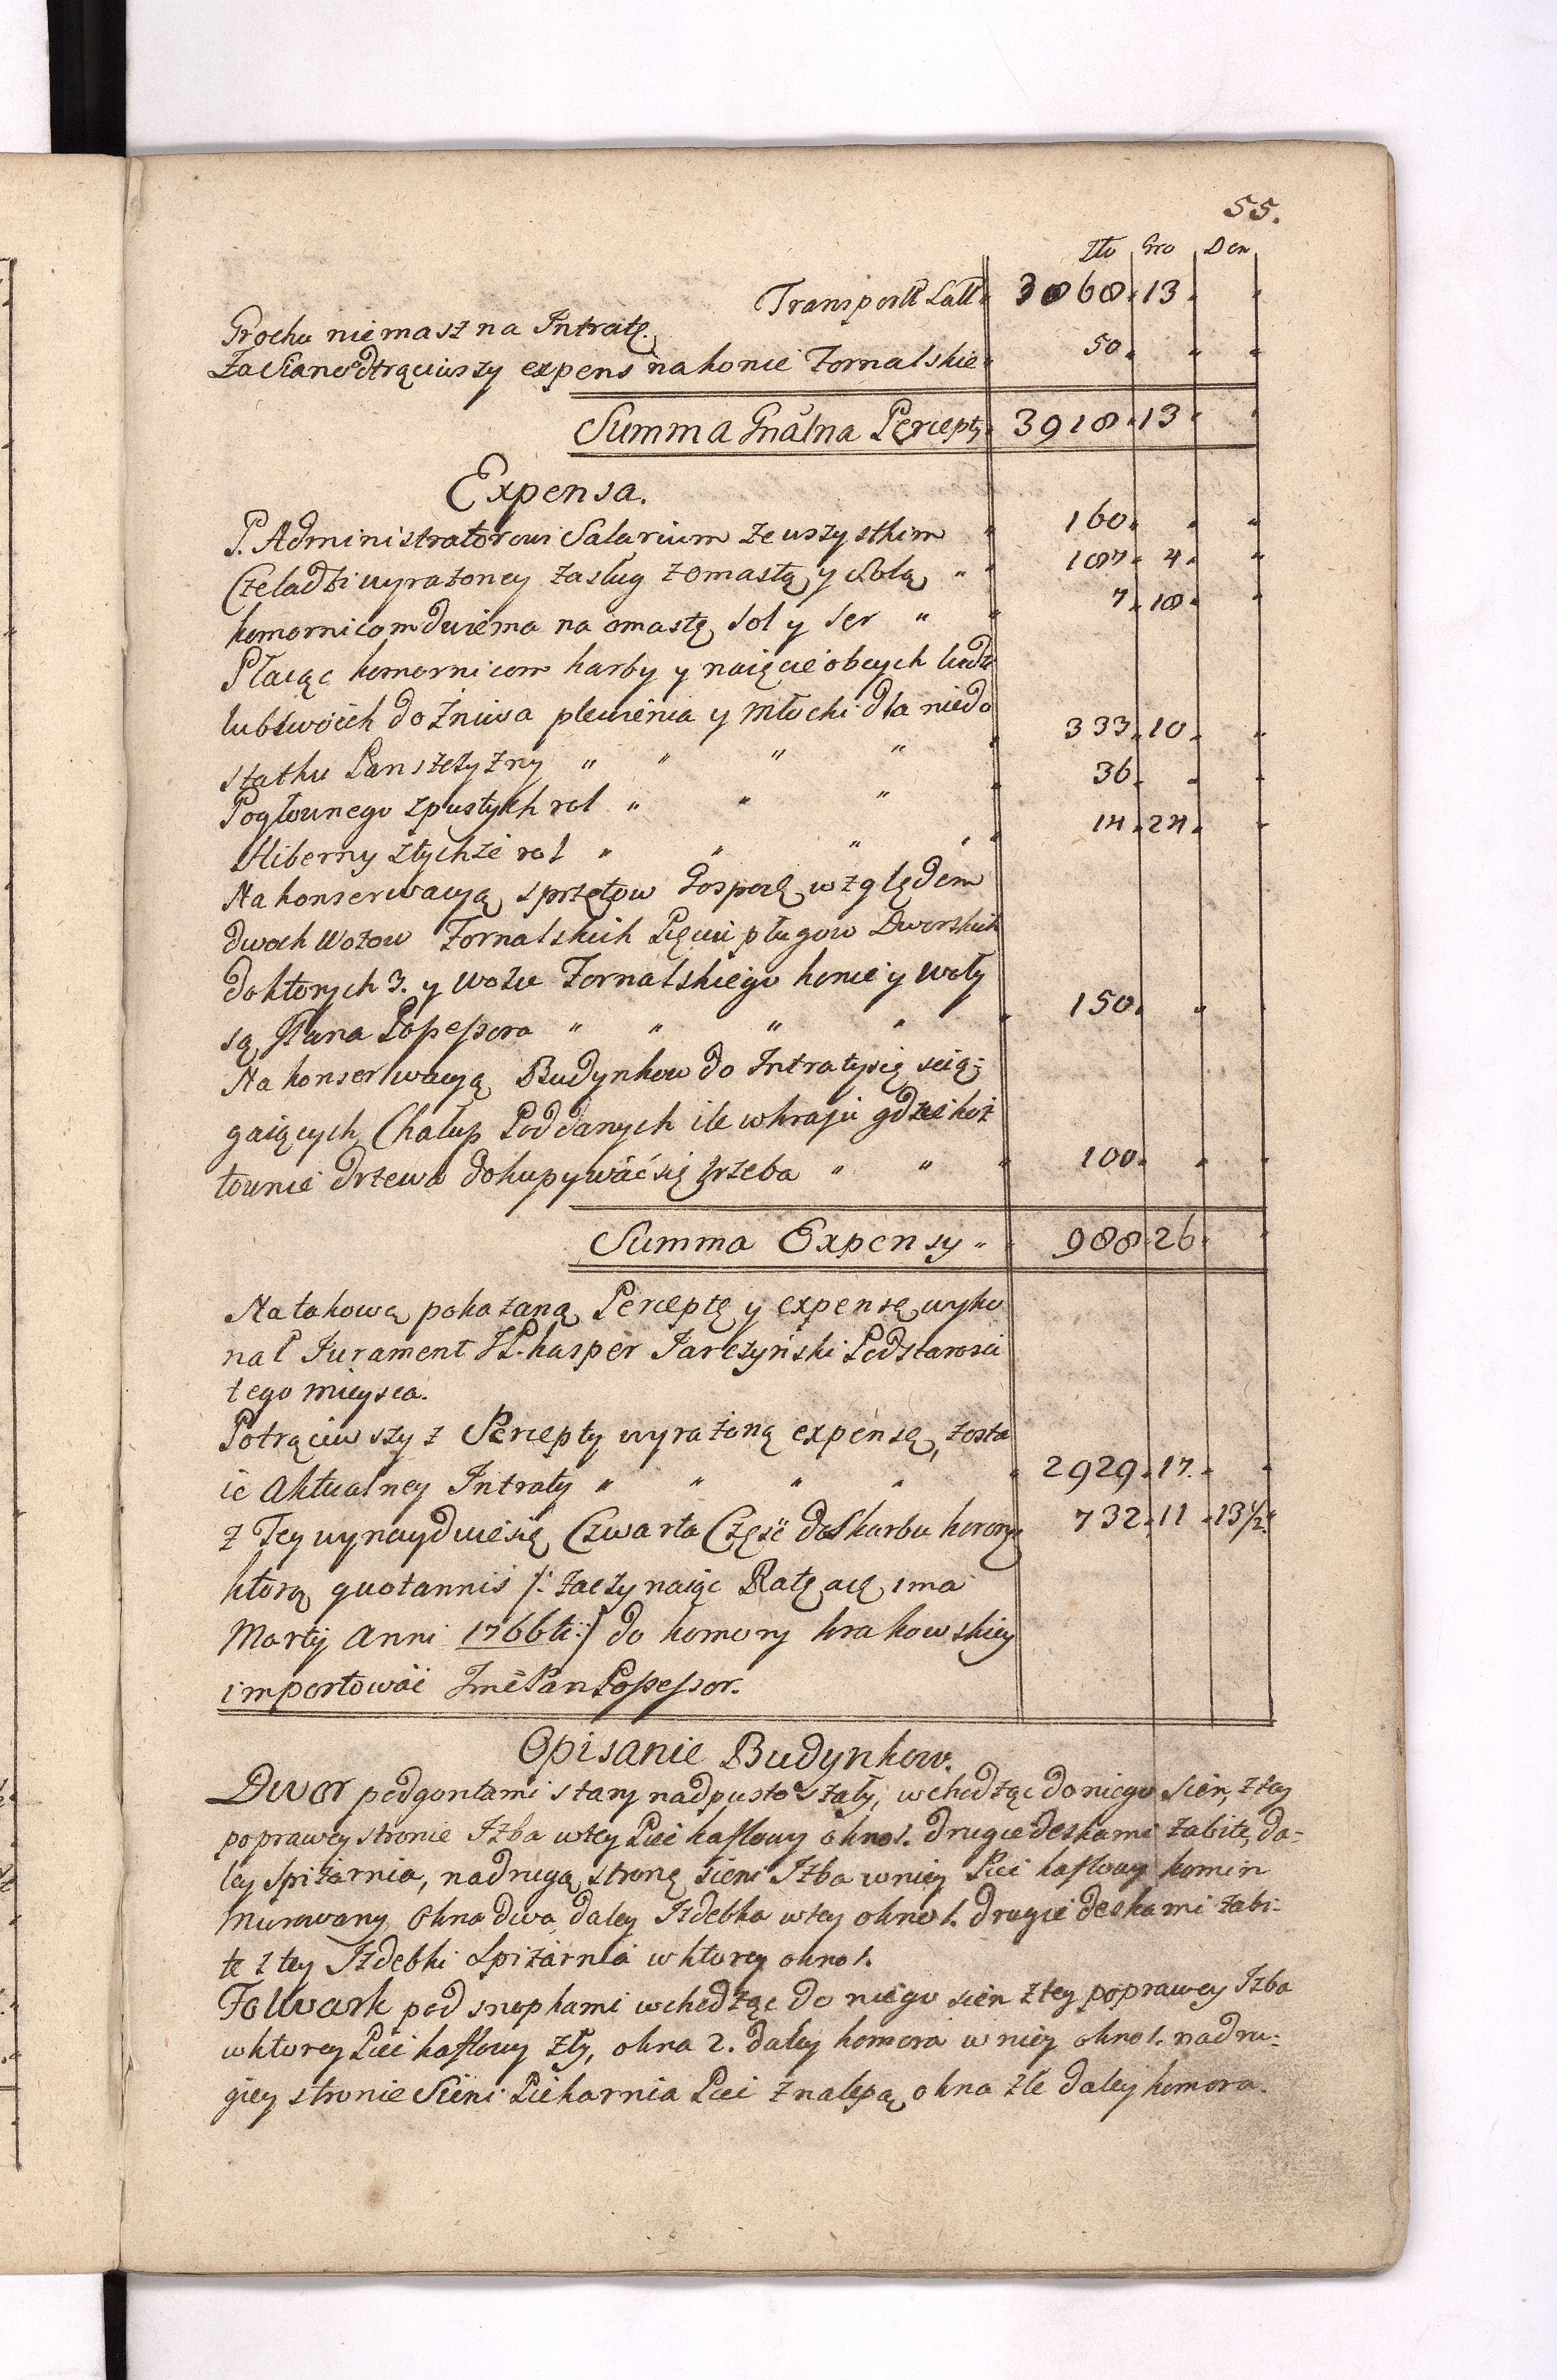 55.
Zło Gro Den
Transport Latt 3868. 13.
Grochu niemasz na Intratę.
Za Siano odtrąciwszy expens na konie Fornalskie 50.
Summa Gnalna Percepty 3918. 13.
Expensa.
P. Administratorowi Salarium ze wszystkim 160.
Czeladzi wyrażoney zasług z omastą y Solą 187. 4.
komornicom dwiema na omastę sol y ser 7. 18.
Płacąc komornicom karby y naięcie obcych ludzi
lub swoich do żniwa plewienia y młocki dla niedo
statku Panszczyzny 333. 10.
Pogłownego z pustych rol 36.
Hiberny z tychże rol 14. 24.
Na konserwacyą sprzętow Gospod: względem
dwoch Wozow Fornalskich Pięciu pługow Dworskich
do ktorych 3. y Wozu Fornalskiego konie y woły
są Pana Possessora 150.
Na konserwacyą Budynkow do Intraty się scią-
gaiących, Chałup Poddanych ile w kraju gdzie kosz
townie drzewa dokupywać się trzeba 100.
Summa Expensy 988. 26.
Na takową pokazaną Perceptę y expensę wyko
nał Jurament JP. kasper Jarczyński Podstarosci
tego mieysca.
Potrąciwszy z Percepty wyrażoną expensę, zosta
ie aktualney Intraty 2929. 17.
z Tey wynaydzie się Czwarta Część do Skarbu koron: 732. 11. 13 1/2.
ktorą quotannis /: zaczynaiąc Ratę a 1ma
Martij Anni 1766ti :/ do komory krakowskiey
importować Jmć Pan Possessor.
Opisanie Budynkow.
Dwor pod gontami stary nadpustoszały, wchodząc do niego sień, z tey
po prawey stronie Izba w tey Piec kaflowy okno 1. drugie deskami zabite, da-
ley spiżarnia, na drugą stronę sieni Izba w niey Piec kaflowy komin
murowany, okna dwa, daley Izdebka w tey okno 1. drugie deskami zabi-
te z tey Izdebki Spiżarnia w ktorey okno 1.
Folwark pod snopkami wchodząc do niego sień z tey po prawey Izba
w ktorey Piec kaflowy zły, okna 2. daley komora w niey okno 1. na dru-
giey stronie Sieni Piekarnia Piec z nalepą okna złe daley komora.